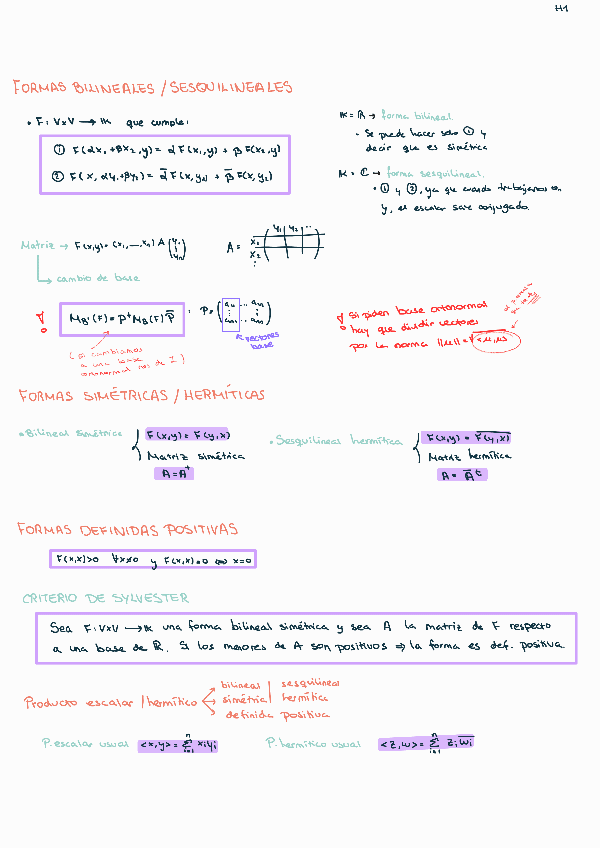 H1
FORMAS BILINEALES / SESQUILINEALES
• F: V×V → K que cumple:
① F(αx₁+βx₂,y) = αF(x₁,y) + βF(x₂,y)
② F(x, αy₁+βy₂) = ᾱF(x,y₁) + β̄F(x,y₂)
K = R → forma bilineal.
• Se puede hacer solo ① y
decir que es simétrica
K = C → forma sesquilineal.
• ① y ②, ya que cuando trabajamos en
y, el escalar sale conjugado.
Matriz → F(x,y) = (x₁, ..., xₙ) A (y₁ ⋮ yₙ)
A = y₁ y₂ ...
x₁
x₂
⋮
cambio de base
M_B'(F) = Pᵗ M_B(F) P̄ : P = (a₁₁ ... a₁ₙ ⋮ ⋮ aₙ₁ ... aₙₙ)
vectores
base
(si cambiamos
a una base
ortonormal nos da I)
Si piden base ortonormal
hay que dividir vectores
por la norma ||u|| = √<u,u>
FORMAS SIMÉTRICAS / HERMÍTICAS
• Bilineal simétrica { F(x,y) = F(y,x)
Matriz simétrica
A = Aᵗ
• Sesquilineal hermítica { F(x,y) = F̅(̅y̅,̅x̅)̅
Matriz hermítica
A = Āᵗ
FORMAS DEFINIDAS POSITIVAS
F(x,x)>0 ∀x≠0 y F(x,x)=0 ⇔ x=0
CRITERIO DE SYLVESTER
Sea F: V×V → K una forma bilineal simétrica y sea A la matriz de F respecto
a una base de R. Si los menores de A son positivos ⇒ la forma es def. positiva
Producto escalar / hermítico
bilineal | sesquilineal
simétrica | hermítica
definida positiva
P. escalar usual <x,y> = Σⁿᵢ₌₁ xᵢyᵢ
P. hermítico usual <z,w> = Σⁿᵢ₌₁ zᵢw̄ᵢ